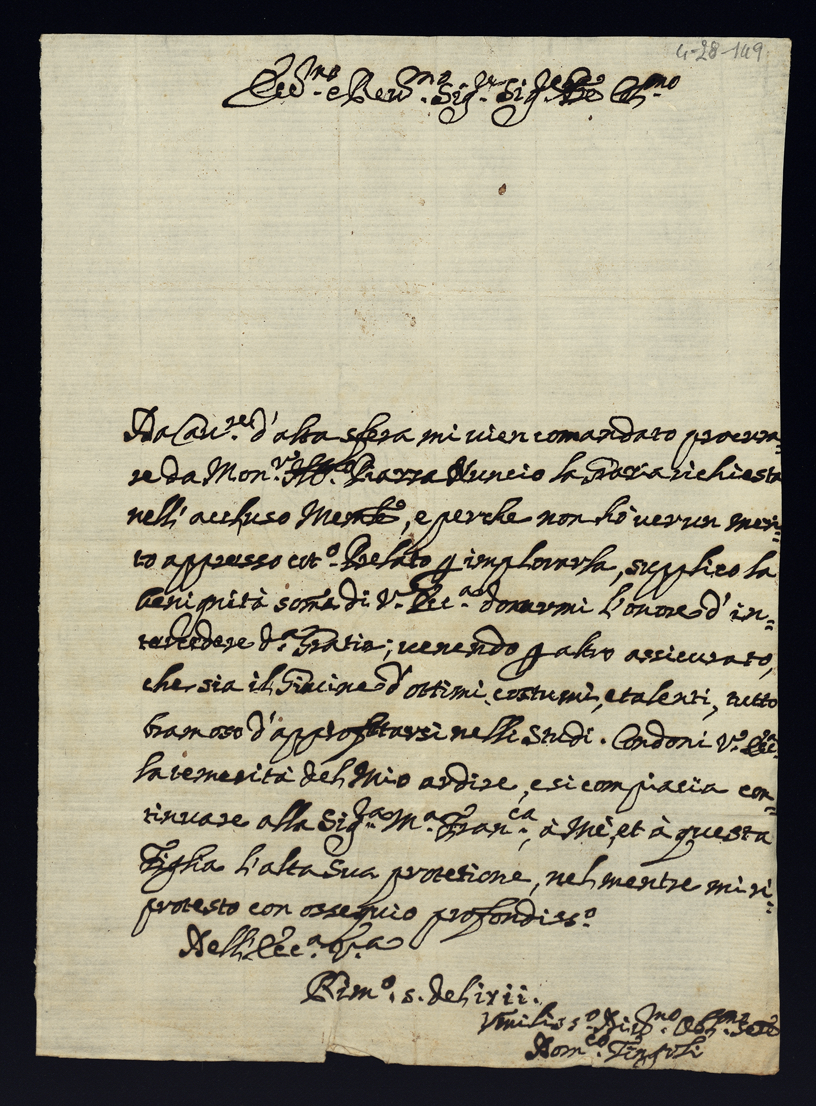 4-28-149
Ecc.mo e Rev.mo Sig.r Sig.r Col.mo
Da Cav.re d'alta sfera mi vien comandato procura=
re da Mon.r Piazza Nuncio la Grazia richiesta
nell'accluso Mem.le, e perche non hò verun meri=
to appresso cot.o Prelato p implorarla, supplico la
benignità som̃a di V.a Ecc.a donarmi l'onore d'in=
tercedere d.a Gratia; venendo p altro assicurato,
che sia il Giovine d'ottimi costumi, e talenti, tutto
bramoso d'approfitarsi nelli Studi. Condoni V.a Ecc.a
la temerità del Mio ardire, e si compiacia con=
tinuare alla Sig.ra M.a Fran.ca, à Mè, et à questa
Figlia l'alta Sua protetione, nel mentre mi ri=
protesto con ossequio profondiss.o
Dell'Ecc.a V.a
Rim.o 5.
Umiliss.o Oblig.mo
Dom.co